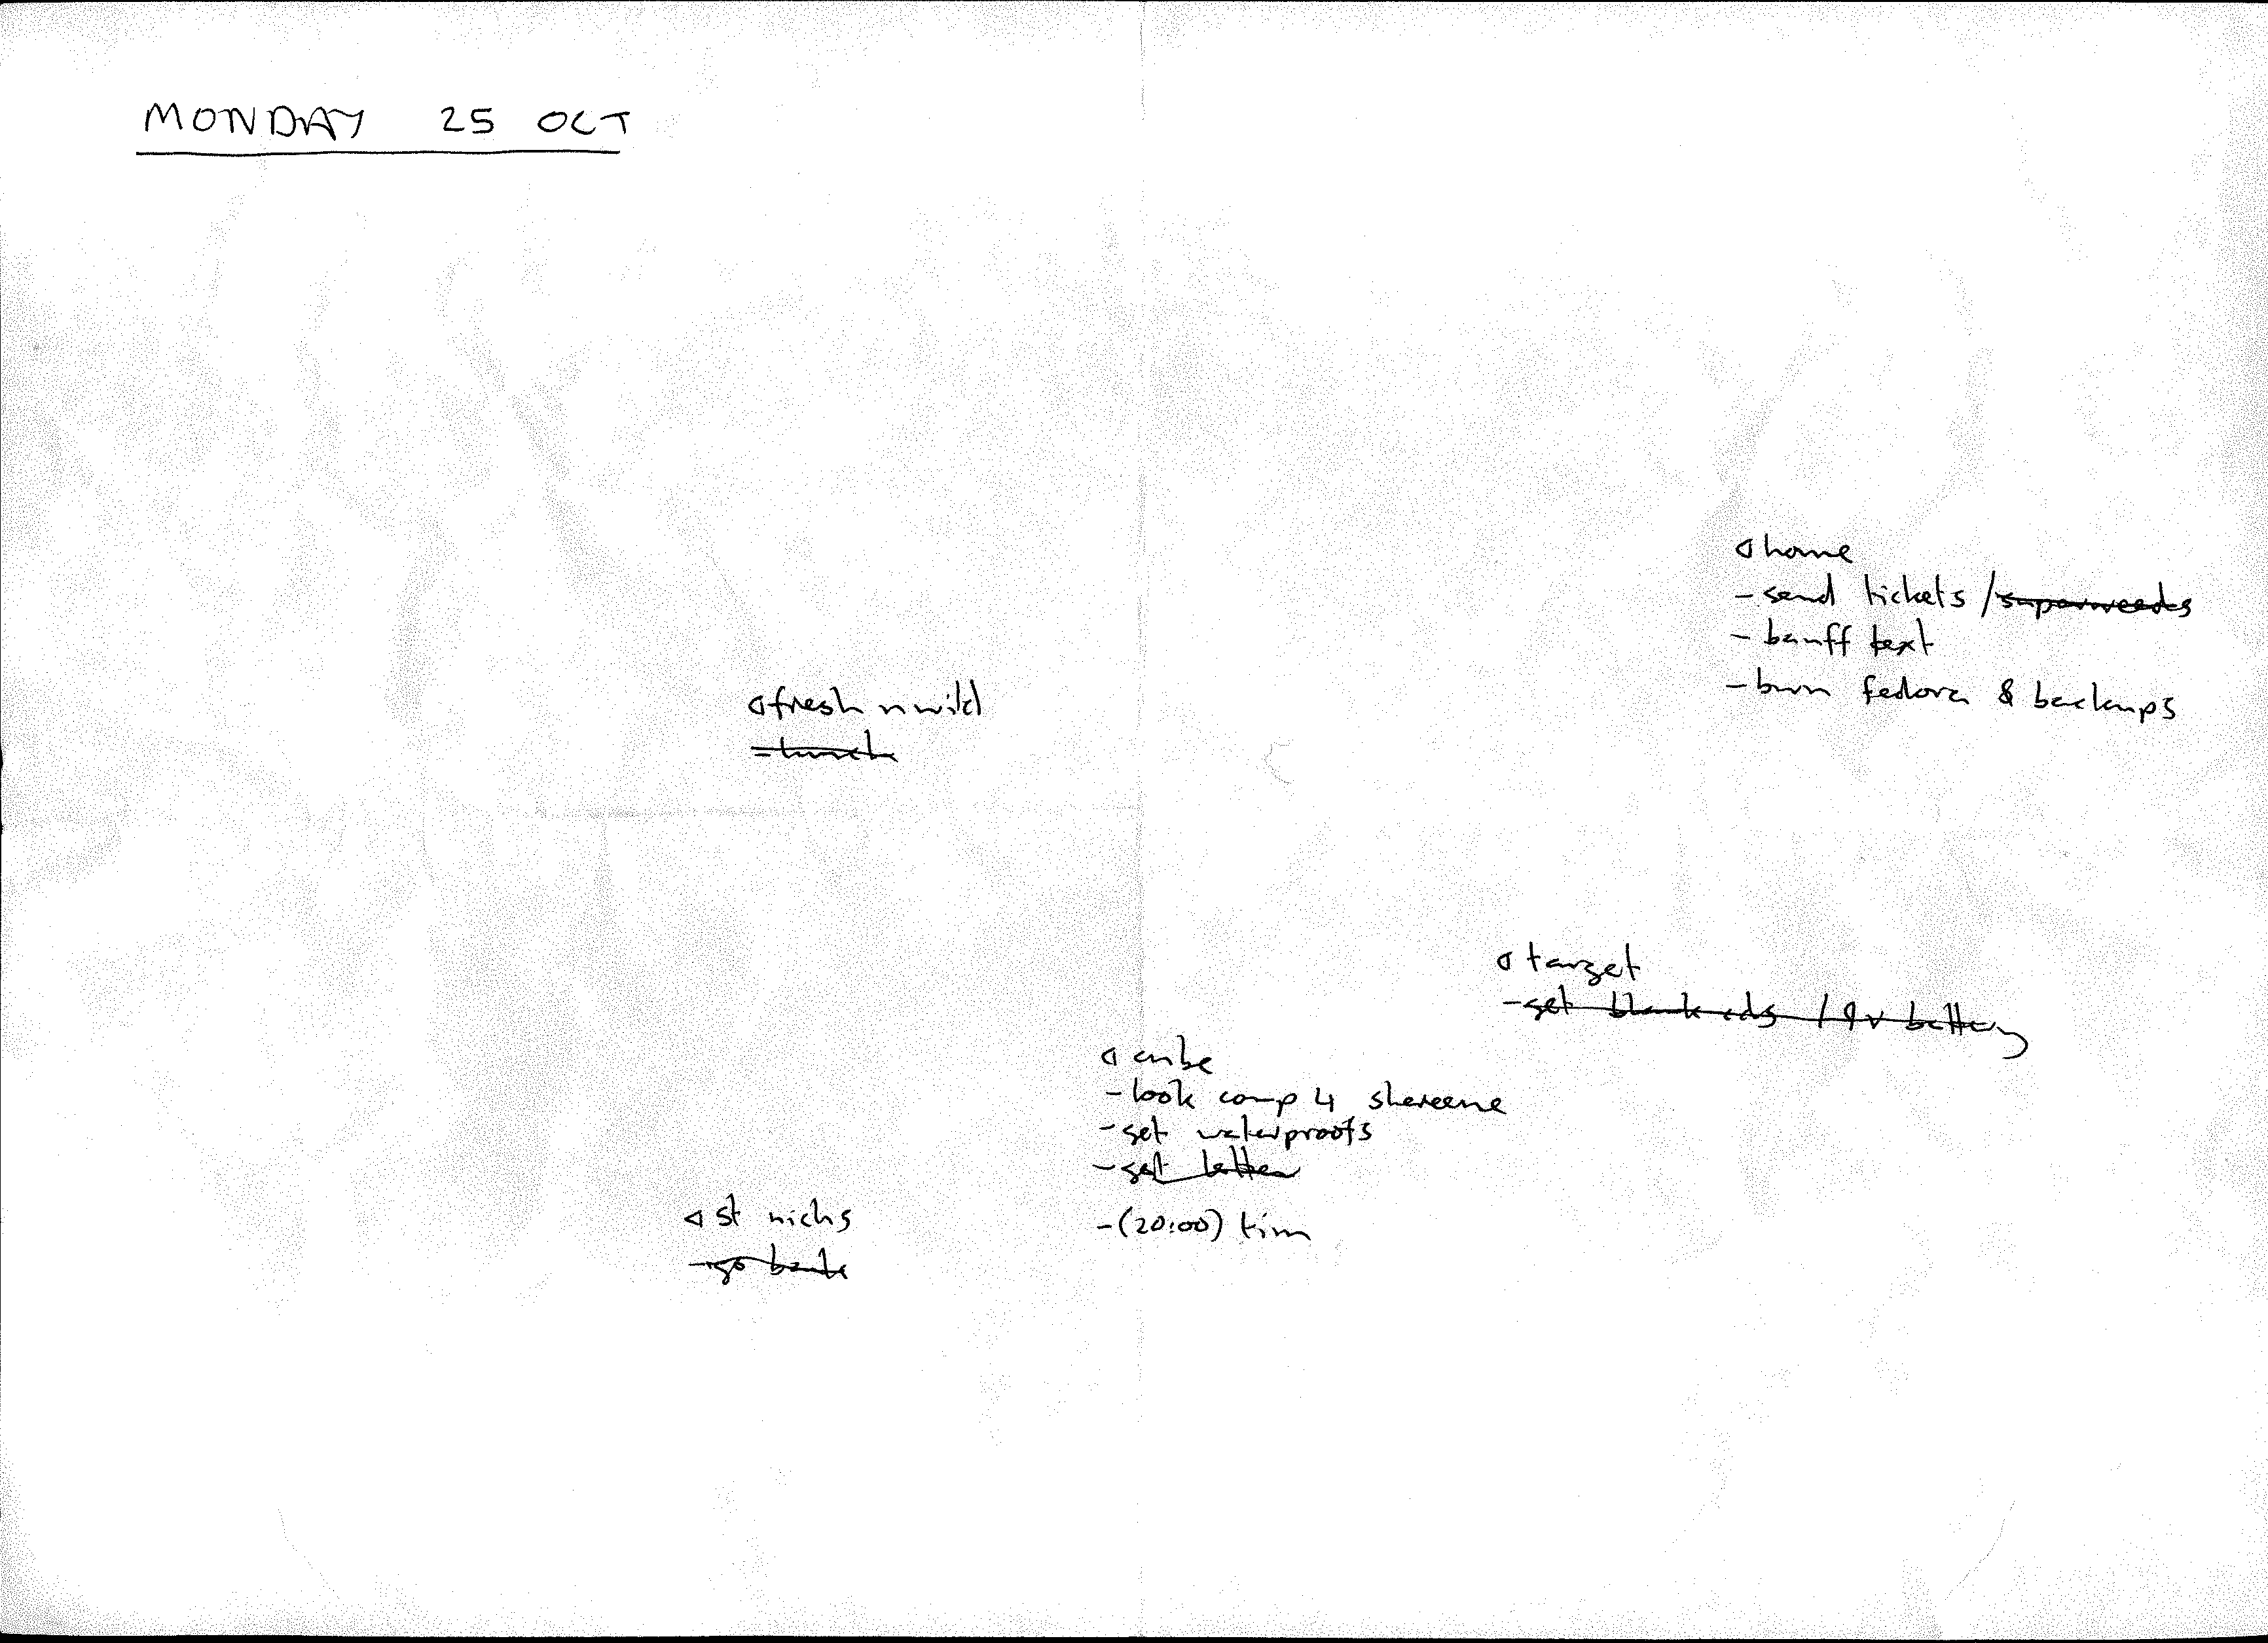 MONDAY 25 OCT
home
- send tickets / superweeds
- banff text
- burn fedora & backups
fresh n wild
- lunch
target
- get blank cds / 9v battery
cube
- look comp 4 shereene
- get waterproofs
- get letter
- (20:00) tim
st nichs
- go bank